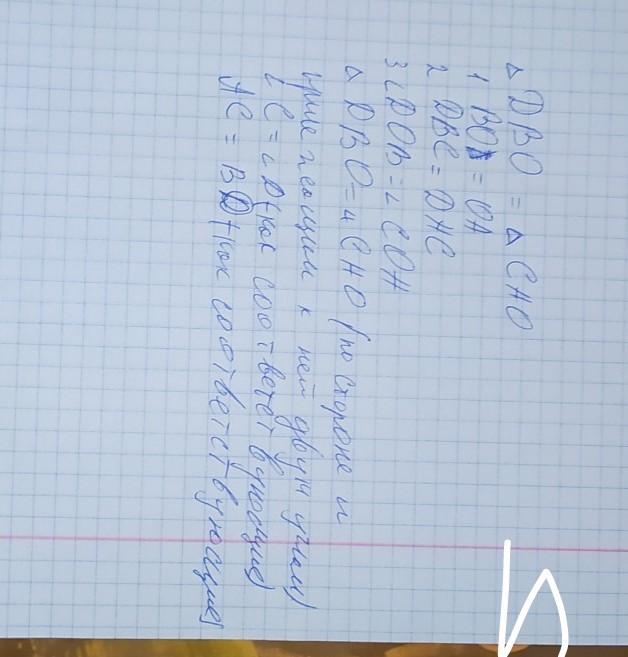 △ DBO = △ CAO
1 BO = OA
2 DBC = DAC
3 ∠DOB = ∠COA
△ DBO = △ CAO (по стороне и
прилежащим к ней двум углам)
∠C = ∠D (как соответствующие)
AC = BD (как соответствующие)